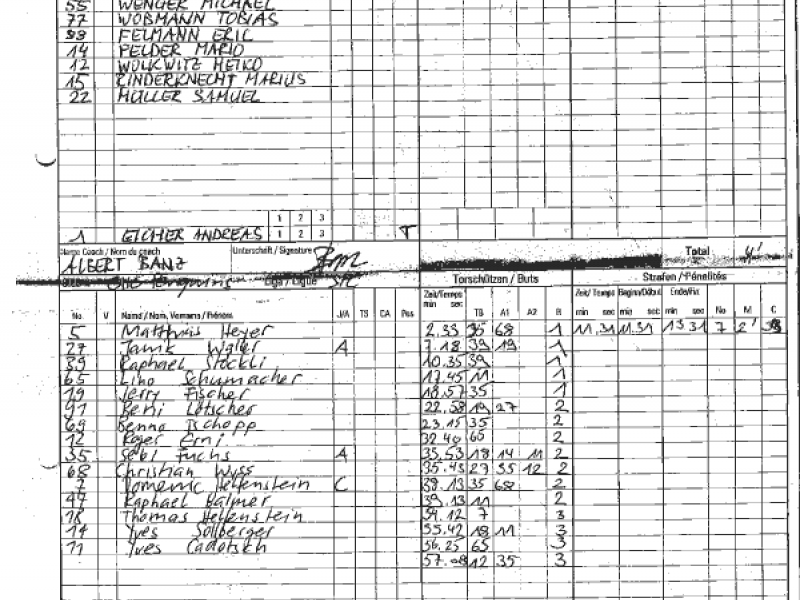 55 WENGER MICHAEL
77 WOBMANN TOBIAS
FELMANN ERIC
14 FELDER MARIO
12 WOLKWITZ HEIKO
15 RINDERKNECHT MARIUS
22 MÜLLER SAMUEL
1 2 3
1 EICHER ANDREAS 1 2 3 T
Name Coach / Nom de coach Unterschrift / Signature Total 4'
ALBERT BANZ
Liga / Ligue Torschützen / Buts Strafen / Pénalités
Zeit/Temps Zeit/Temps Beginn/Début Ende/Fin
No. V Name / Nom, Vorname / Prénom J/A TS CA Pos min sec TB A1 A2 R min sec min sec min sec No M C
5 Matthias Heyer 2.33 35 68 1 11.31 11.31 13 31 7 2'
27 Janik Waller A 7.18 39 19 1
39 Raphael Stöckli 10.35 39 1
65 Lino Schumacher 17.45 11 1
19 Jerry Fischer 18.57 35 1
91 Beni Lötscher 22.58 19 27 2
69 Benno Tschopp 23.15 35 2
12 Roger Erni 32 40 65 2
35 Sebi Fuchs A 35.53 18 14 11 2
68 Christian Wyss 35.43 27 35 12 2
7 Domenic Helfenstein C 38.13 35 68 2
47 Raphael Balmer 39.13 11 2
18 Thomas Helfenstein 54.12 7 3
14 Yves Sollberger 55.42 18 11 3
11 Yves Cadotsch 56.25 65 3
57.08 12 35 3